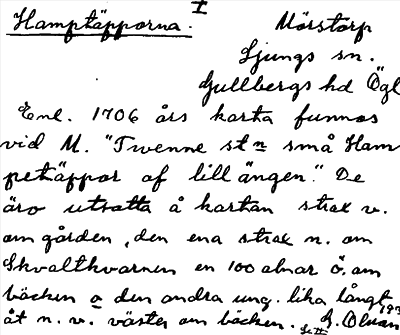 I
Hamptäpporna. Mörstorp
Ljungs sn.
Gullbergs hd Ögl
Enl. 1706 års karta funnos
vid M. "Twenne st n små Ham
petäppor af lill ängen." De
äro utsatta å kartan strax v.
om gården, den ena strax n. om
Skvaltkvarnen en 100 alnar ö. om
bäcken o den andra ung. lika långt
åt n. v. väster om bäcken.